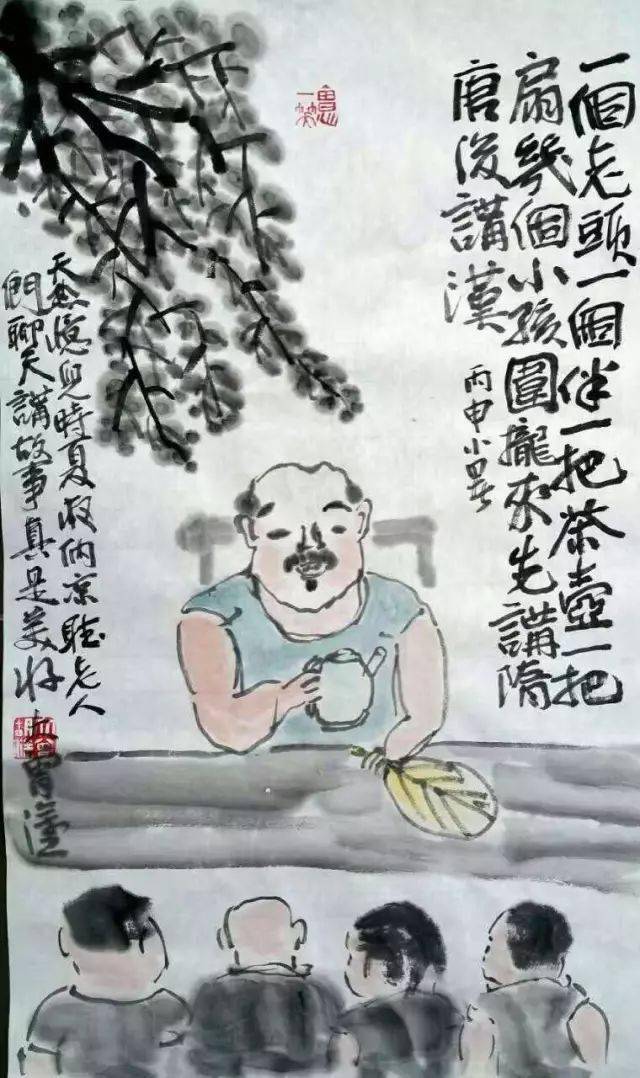 一個老頭一個伴一把茶壺一把
扇幾個小孩圍攏來先講隋
唐後講漢
丙申小暑
天熱憶兒時夏夜納涼聽老人
們聊天講故事真是美好